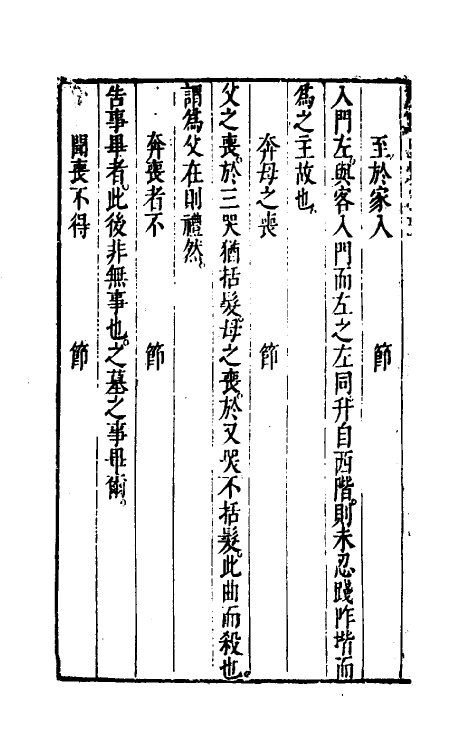 至於家入　　節
入門左與客入門而左之左同升自西階則未忍踐阼堦而
爲之主故也
奔母之喪　　節
父之喪於三哭猶括髮母之喪於又哭不括髮此曲而殺也
謂爲父在則禮然
奔喪者不　　節
告事畢者此後非無事也之墓之事畢爾
聞喪不得　　節